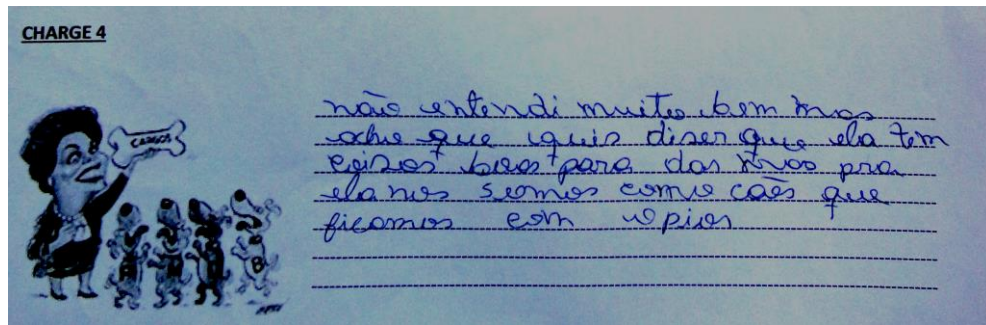 CHARGE 4
CARGOS
não entendi muito bem mas
acho que quis diser que ela tem
coisas boas para das mas pra
ela nos somos como cães que
ficamos com o pior
B